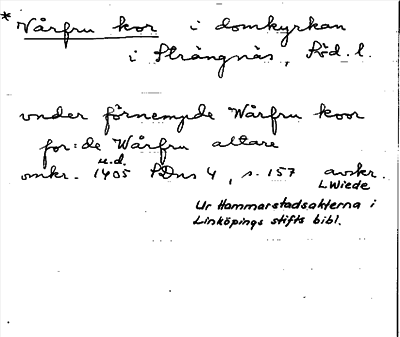 * Vårfru kor i domkyrkan
i Strängnäs, Söd. l.
vnder förnempde Wårfru koor
for:de Wårfru altare
u.d.
omkr. 1405 SDns 4, s. 157 avskr.
L Wiede
Ur Hammarstadsakterna i
Linköpings stifts bibl.